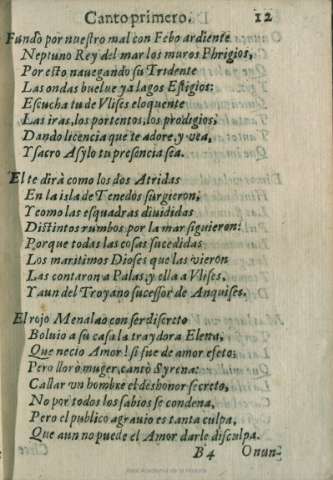 Canto primero. 12
Fundò por nuestro mal con Febo ardiente
Neptuno Rey del mar los muros Phrigios,
Por esto nauegando su Tridente
Las ondas buelue ya lagos Estigios;
Escucha tu de Vlises eloquente
Las iras, los portentos, los prodigios,
Dando licencia que te adore, y vea,
Y sacro Asylo tu presencia sea.
El te dirà como los dos Atridas
En la isla de Tenedos surgieron;
Y como las esquadras diuididas
Distintos rumbos por la mar siguieron:
Porque todas las cosas sucedidas
Los maritimos Dioses que las vieron
Las contaron a Palas, y ella a Vlises,
Y aun del Troyano sucessor de Anquises.
El rojo Menalao con ser discreto
Boluio a su casa la traydora Elena,
Que necio Amor! si fue de amor efeto;
Pero llorò muger, cantò Syrena:
Callar vn hombre el deshonor secreto,
No por todos los sabios se condena,
Pero el publico agrauio es tanta culpa,
Que aun no puede el Amor darle disculpa.
B 4 Onun-
Real Academia de la Historia